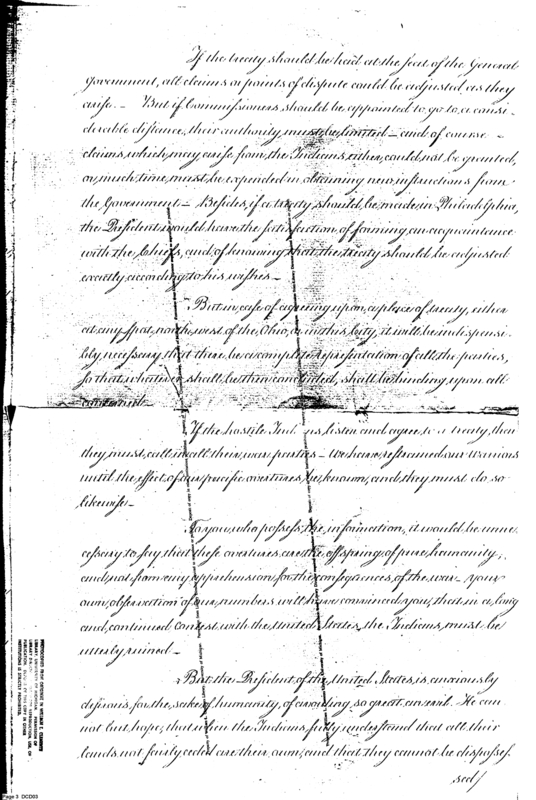 If the treaty should be held at the seat of the General
Government, all claims or points of dispute could be adjusted as they
arise. - But if Commissioners should be appointed to go to a consi-
derable distance, their authority must be limited - and of course -
claims, which may arise from the Indians either could not be granted,
or, much time must be expended in obtaining new instructions from
the Government - Besides, if a treaty should be made in Philadelphia,
the President would have the satisfaction of forming an acquaintance
with the Chiefs, and of knowing that the treaty should be adjusted
exactly according to his wishes -
But in case of agreeing upon a place of treaty, either
at any spot, north west of the Ohio, or in this City, it will be indispensi-
bly necessary that there be a complete representation of all the parties,
so that whatever shall be then concluded, shall be binding upon all
concerned -
If the hostile Indians listen and agree to a treaty, then
they must call in all their war parties - We have restrained our Warriors
until the effect of our pacific overtures be known, and they must do so
likewise -
To you, who possess the information, it would be unne-
cessary to say, that these overtures are the offspring of pure humanity,
and, not from any apprehension for the consequences of the war - your
own observation of our numbers will have convinced you, that in a long
and, continued Contest with the United States, the Indians, must be
utterly ruined -
But the President of the United States, is anxiously
desirous, for the sake of humanity, of avoiding so great an evil. He can
not but hope, that when the Indians fully understand that all their
lands not fairly ceded are their own, and that they cannot be disposses-
sed/
Page 3 DCD03